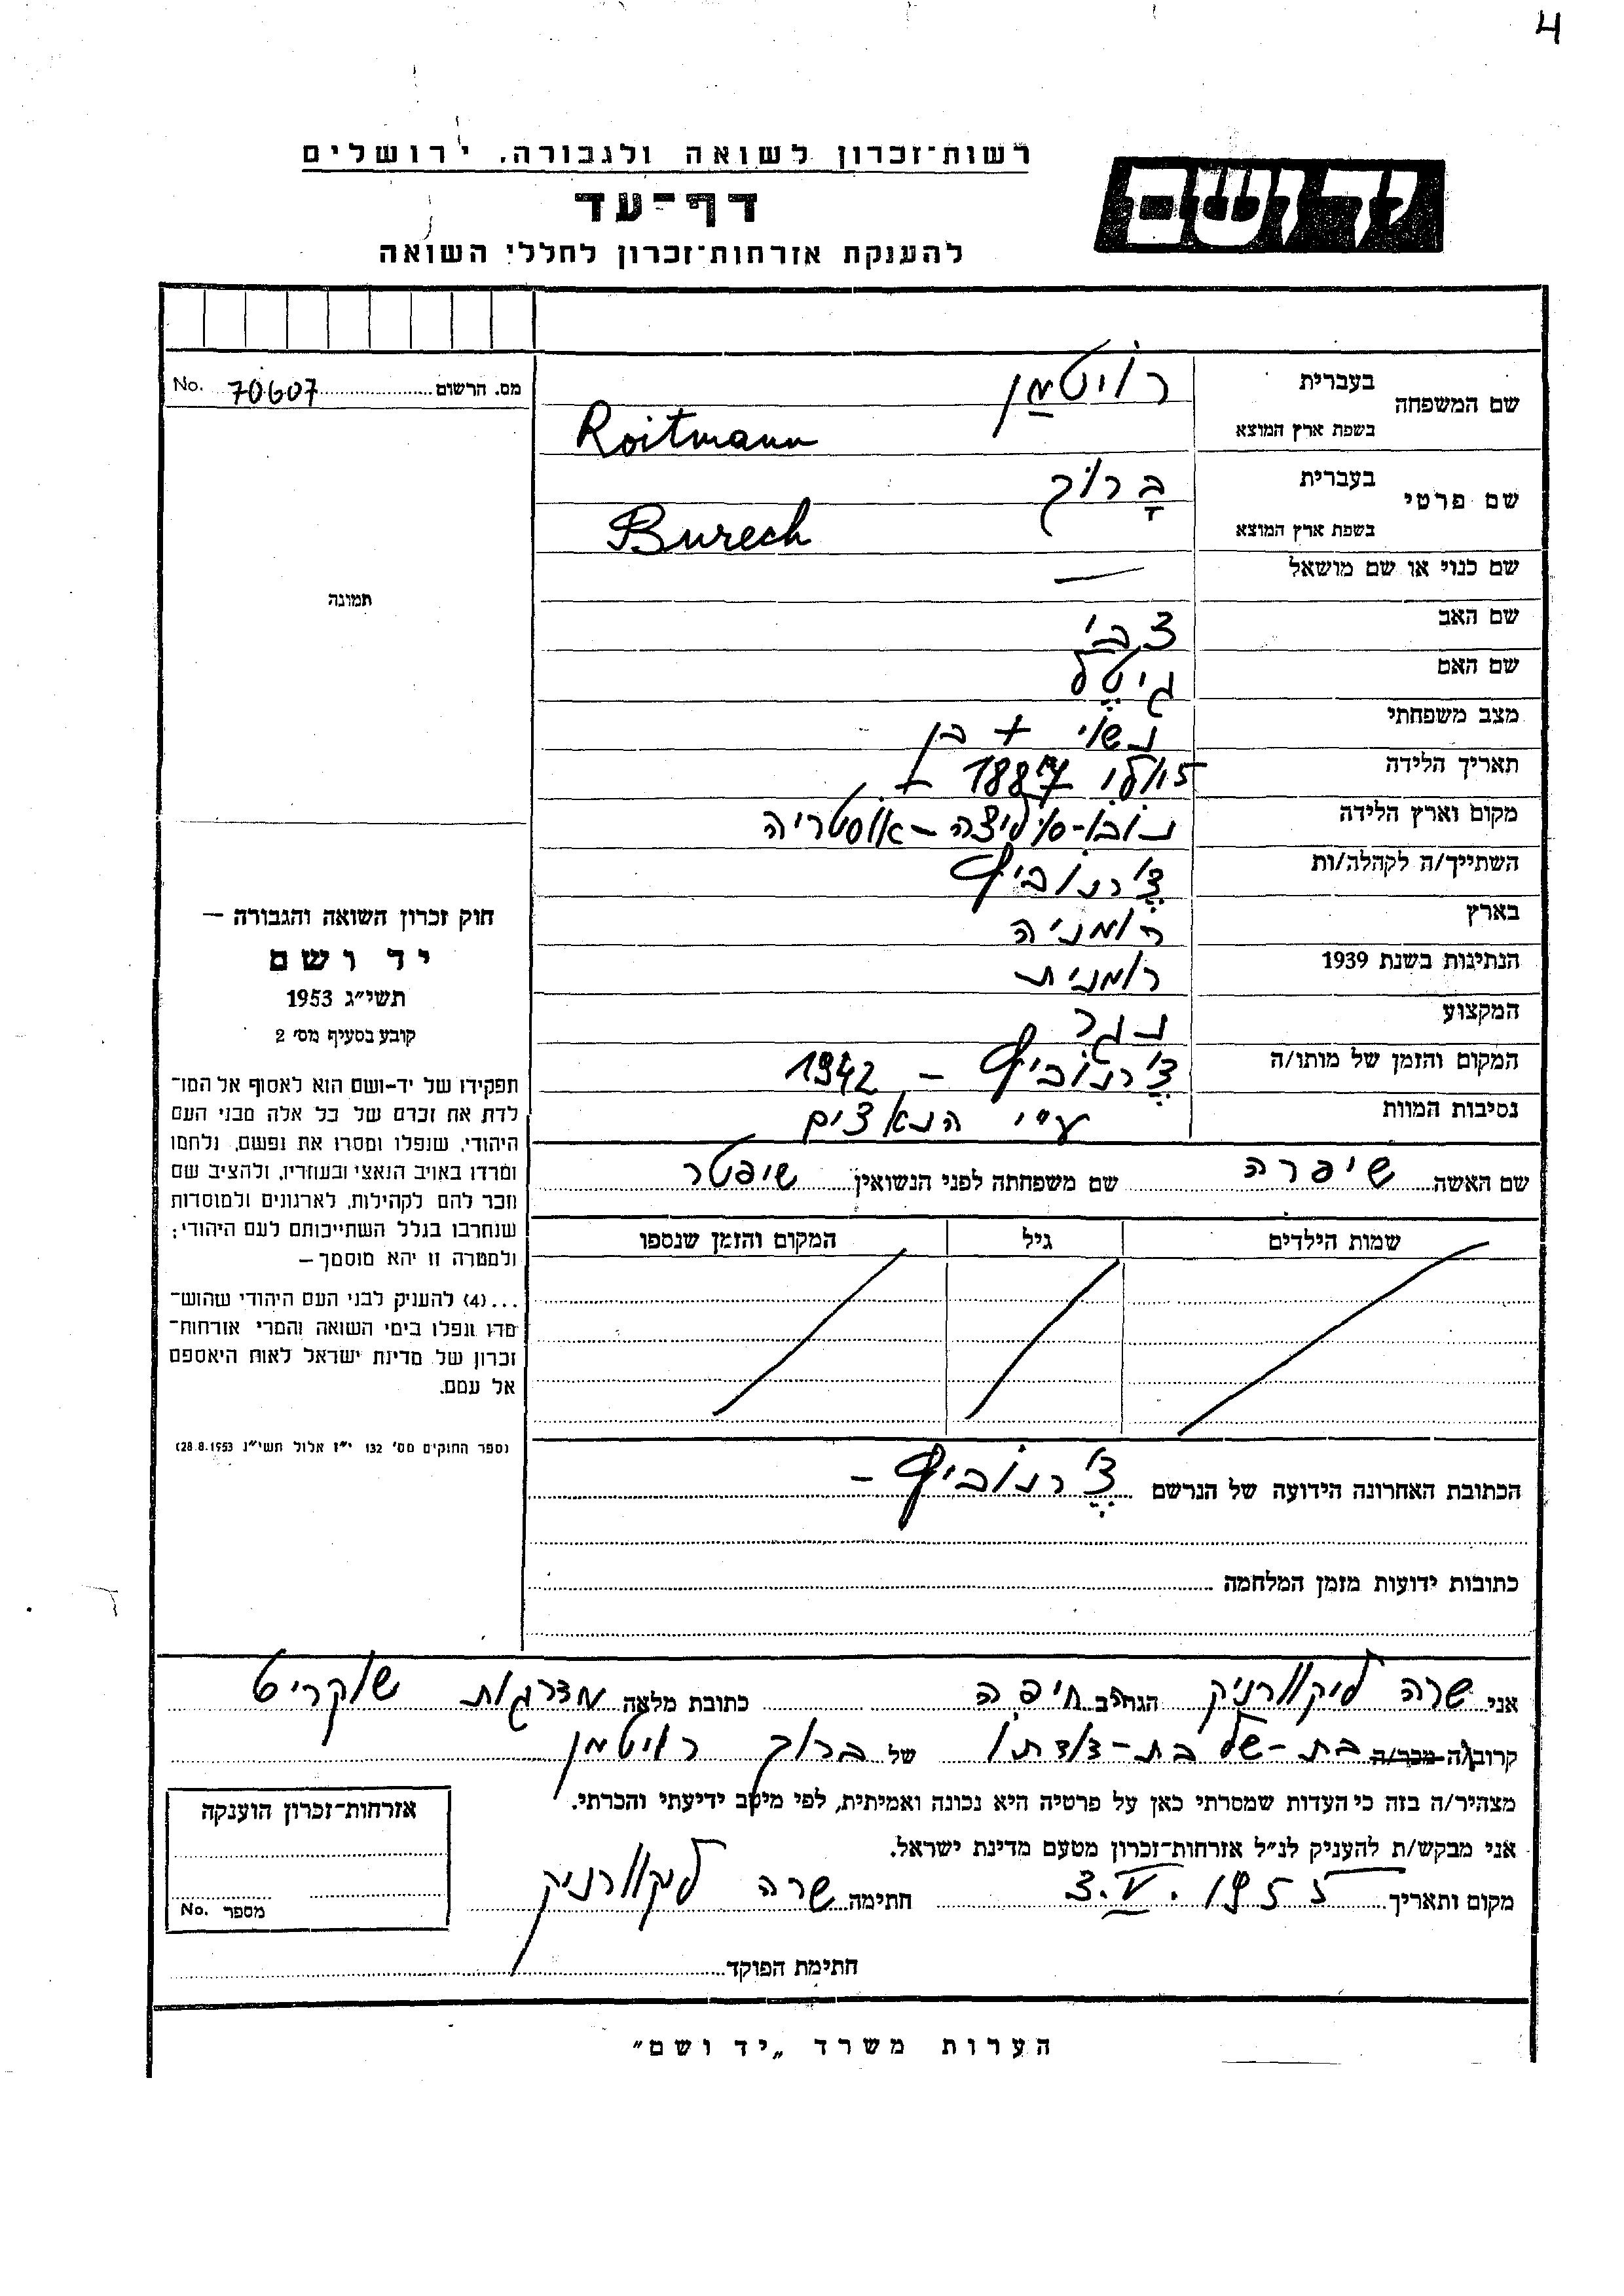 4
רשות־זכרון לשואה ולגבורה, ירושלים
יד ושם
דף־עד
להענקת אזרחות־זכרון לחללי השואה
מס. הרשום 70607 No.
שם המשפחה בעברית רויטמן
בשפת ארץ המוצא Roitmann
שם פרטי בעברית ברוך
בשפת ארץ המוצא Burech
שם כנוי או שם מושאל —
שם האב צבי
שם האם גיטל
מצב משפחתי נשוי + בן
תאריך הלידה יולי 1887
מקום וארץ הלידה נובו-סוליצה - אוסטריה
השתייך/ה לקהלה/ות צ'רנוביץ
בארץ רומניה
הנתינות בשנת 1939 רומנית
המקצוע נגר
המקום והזמן של מותו/ה צ'רנוביץ - 1942
נסיבות המוות ע״י הנאצים
שם האשה שיפרה שם משפחתה לפני הנשואין שופטר
שמות הילדים גיל המקום והזמן שנספו
הכתובת האחרונה הידועה של הנרשם צ'רנוביץ -
כתובות ידועות מזמן המלחמה
תמונה
חוק זכרון השואה והגבורה —
יד ושם
תשי״ג 1953
קובע בסעיף מס׳ 2
תפקידו של יד-ושם הוא לאסוף אל המו־
לדת את זכרם של כל אלה מבני העם
היהודי, שנפלו ומסרו את נפשם, נלחמו
ומרדו באויב הנאצי ובעוזריו, ולהציב שם
וזכר להם לקהילות, לארגונים ולמוסדות
שנחרבו בגלל השתייכותם לעם היהודי;
ולמטרה זו יהא מוסמך —
...(4) להעניק לבני העם היהודי שהוש־
מדו ונפלו בימי השואה והמרי אזרחות־
זכרון של מדינת ישראל לאות היאספם
אל עמם.
(ספר החוקים מס׳ 132 י״ז אלול תשי״ג 28.8.1953)
אני שרה ליקוורניק הגר/ה ב חיפה כתובת מלאה מדרגות שוקריט
קרוב/ה מכר/ה בת-של בת-דודתו של ברוך רויטמן
מצהיר/ה בזה כי העדות שמסרתי כאן על פרטיה היא נכונה ואמיתית, לפי מיטב ידיעתי והכרתי.
אני מבקש/ת להעניק לנ״ל אזרחות־זכרון מטעם מדינת ישראל.
מקום ותאריך 3.V.1955 חתימה שרה ליקוורניק
חתימת הפוקד
אזרחות־זכרון הוענקה
מספר No.
הערות משרד „יד ושם״